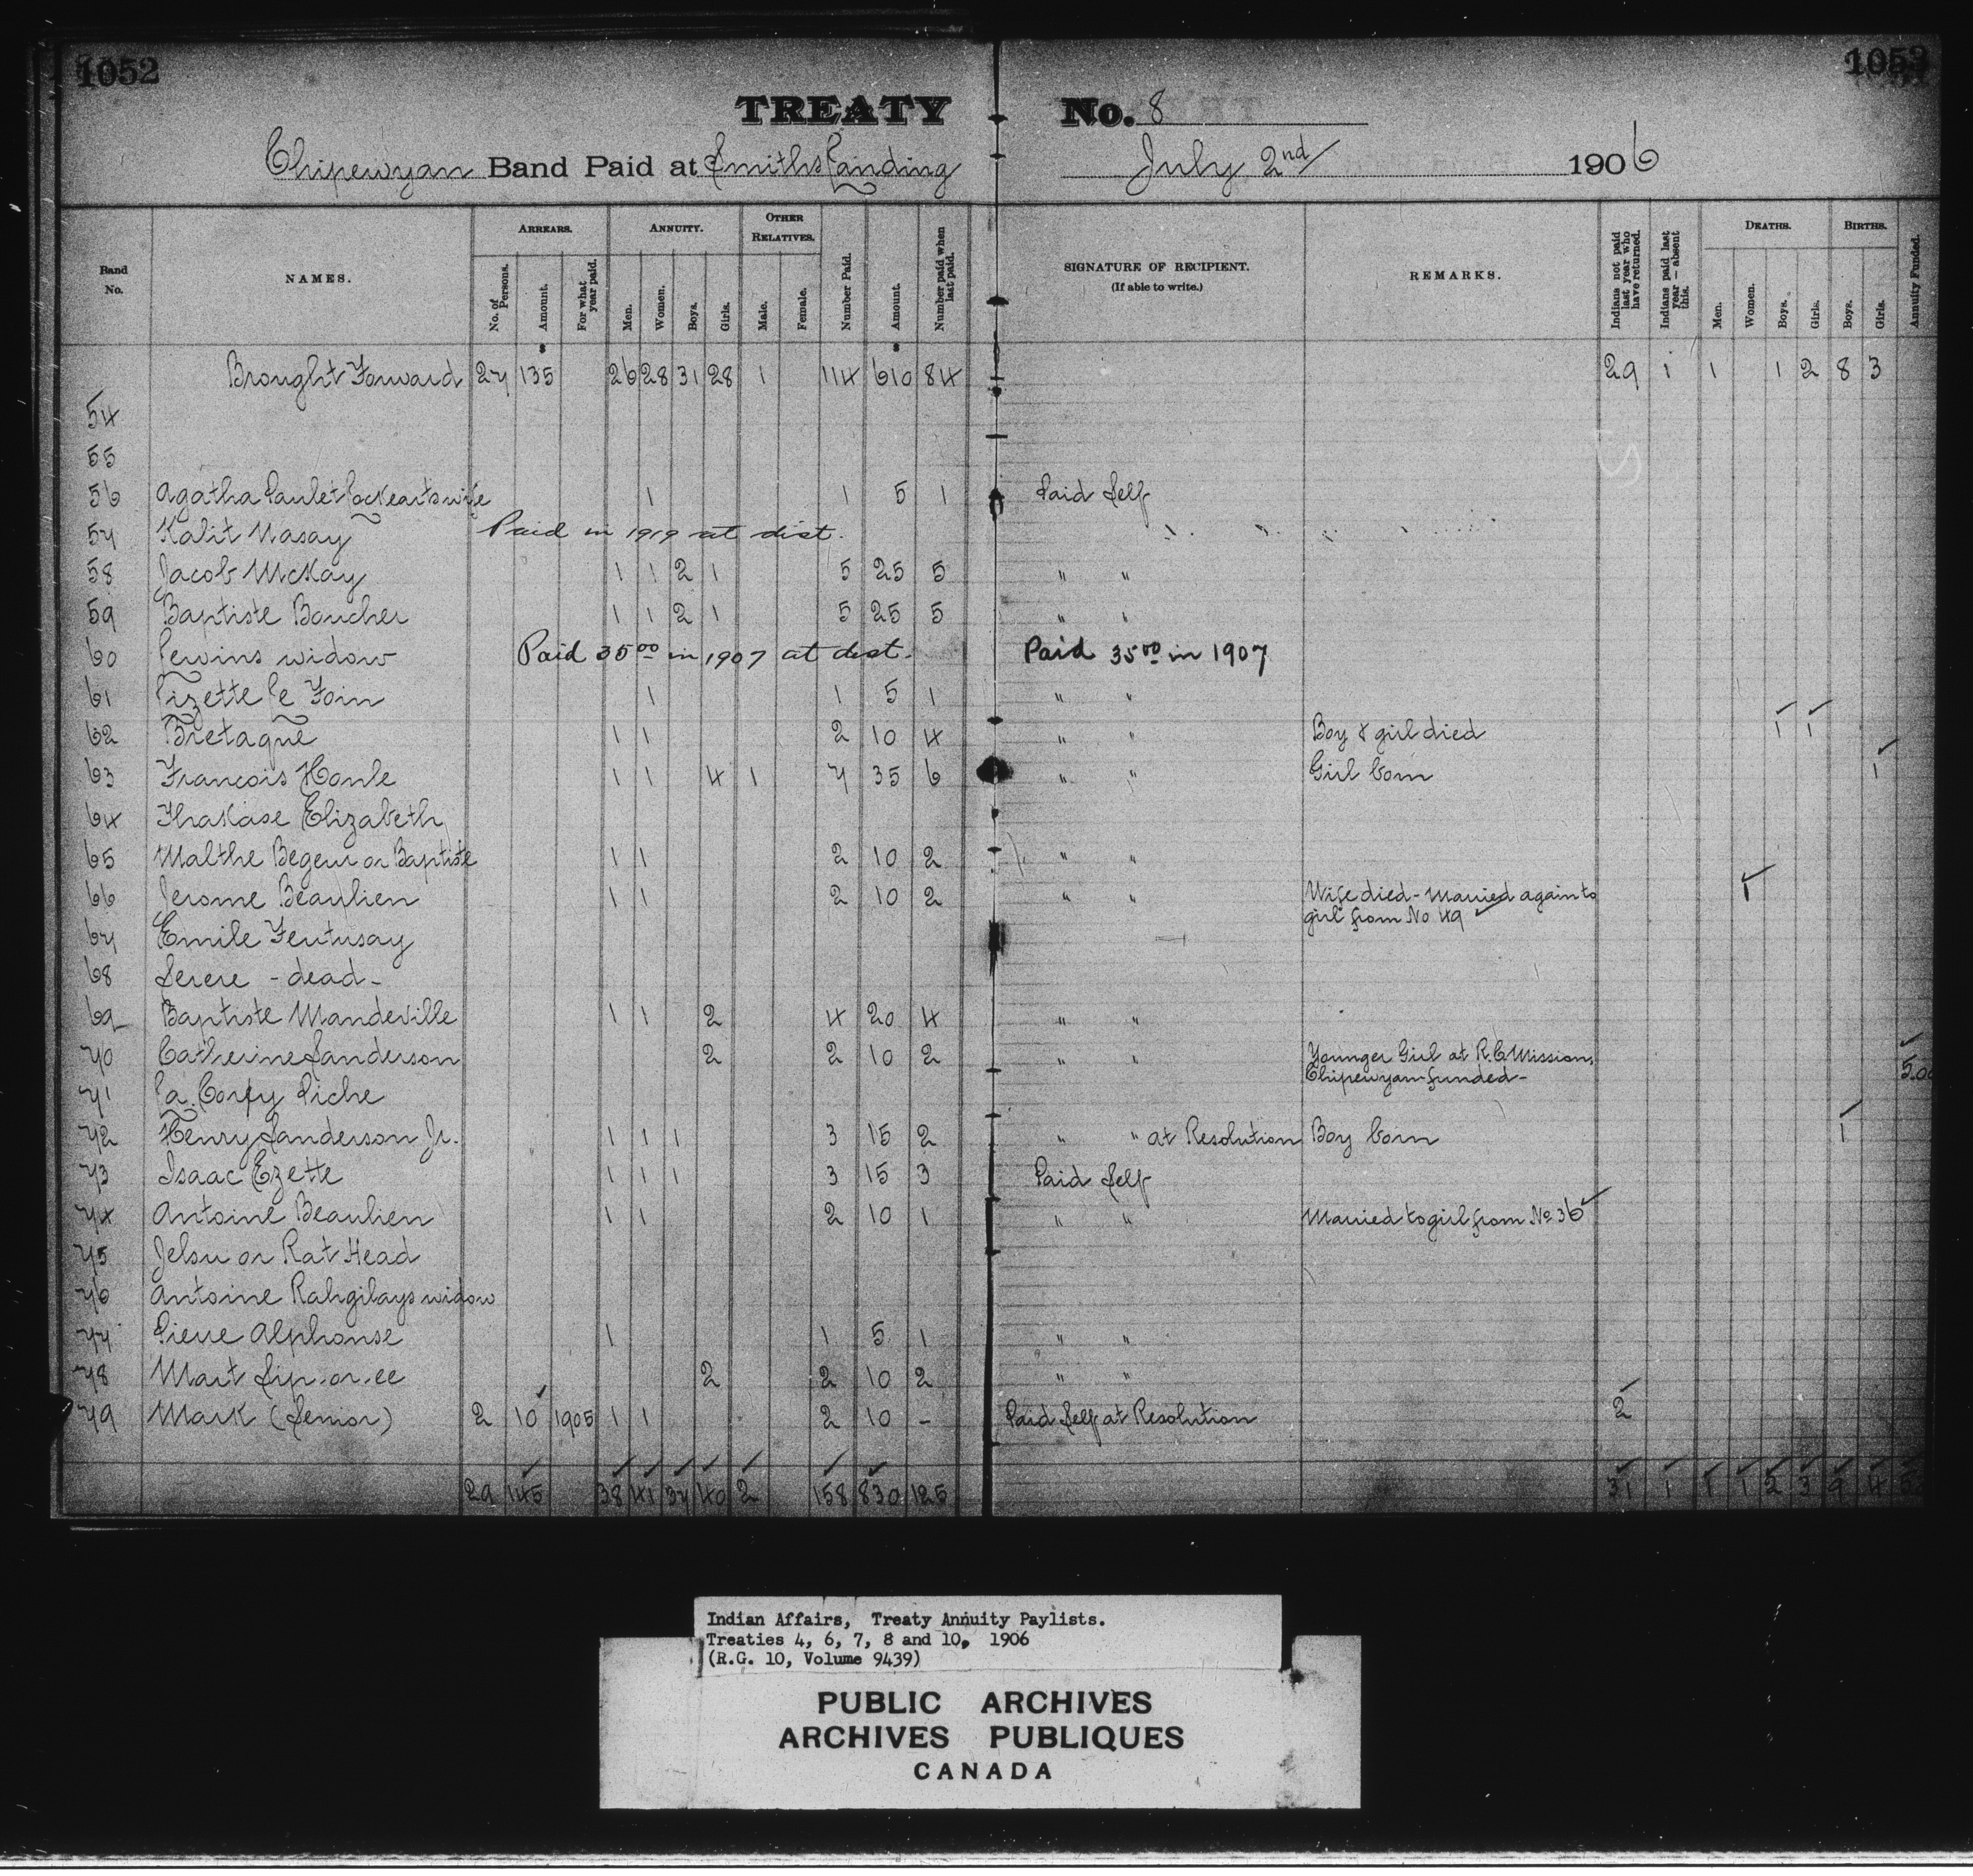 1052 1053
TREATY No. 8
Chipewyan Band Paid at Smiths Landing July 2nd/ 1906
Band No. NAMES. ARREARS. No. of Persons. Amount. For what year paid. ANNUITY. Men. Women. Boys. Girls. OTHER RELATIVES. Male. Female. Number Paid. Amount. Number paid when last paid. SIGNATURE OF RECIPIENT. (If able to write.) REMARKS. Indians not paid last year who have returned. Indians paid last year—absent this. DEATHS. Men. Women. Boys. Girls. BIRTHS. Boys. Girls. Annuity Funded.
Brought Forward 27 135 26 28 31 28 1 114 610 84 29 1 1 1 2 8 3
54
55
56 Agatha Paulet Lockearts wife 1 1 5 1 Paid Self
57 Kalit Nasay Paid in 1919 at dist.
58 Jacob McKay 1 1 2 1 5 25 5 " "
59 Baptiste Boucher 1 1 2 1 5 25 5 " "
60 Lewins widow Paid 35 00 in 1907 at dist. Paid 35 00 in 1907
61 Lizette Le Foin 1 1 5 1 " "
62 Bretagne 1 1 2 10 4 " " Boy & girl died 1 1
63 Francois Honle 1 1 4 1 7 35 6 " " Girl born 1
64 Thakase Elizabeth
65 Malthe Begeur or Baptiste 1 1 2 10 2 " "
66 Jerome Beaulieu 1 1 2 10 2 " " Wife died - Married again to
girl from No 49 1
67 Emile Fentusay
68 Serere - dead -
69 Baptiste Mandeville 1 1 2 4 20 4 " "
70 Catherine Sanderson 2 2 10 2 " " Younger Girl at R.C. Mission,
Chipewyan funded - 5.00
71 La Corpy Piche
72 Henry Sanderson Jr. 1 1 1 3 15 2 " " at Resolution Boy born 1
73 Isaac Ezette 1 1 1 3 15 3 Paid Self
74 Antoine Beaulieu 1 1 2 10 1 " " Married to girl from No. 36
75 Jelsu or Rat Head
76 Antoine Rahgilays widow
77 Pierre Alphonse 1 1 5 1 " "
78 Mart Sip.or.ee 2 2 10 2 " "
79 Mark (Senior) 2 10 1905 1 1 2 10 - Paid Self at Resolution 2
29 145 38 41 37 40 2 158 830 125 31 1 1 1 2 3 9 4
Indian Affairs, Treaty Annuity Paylists.
Treaties 4, 6, 7, 8 and 10, 1906
(R.G. 10, Volume 9439)
PUBLIC ARCHIVES
ARCHIVES PUBLIQUES
CANADA